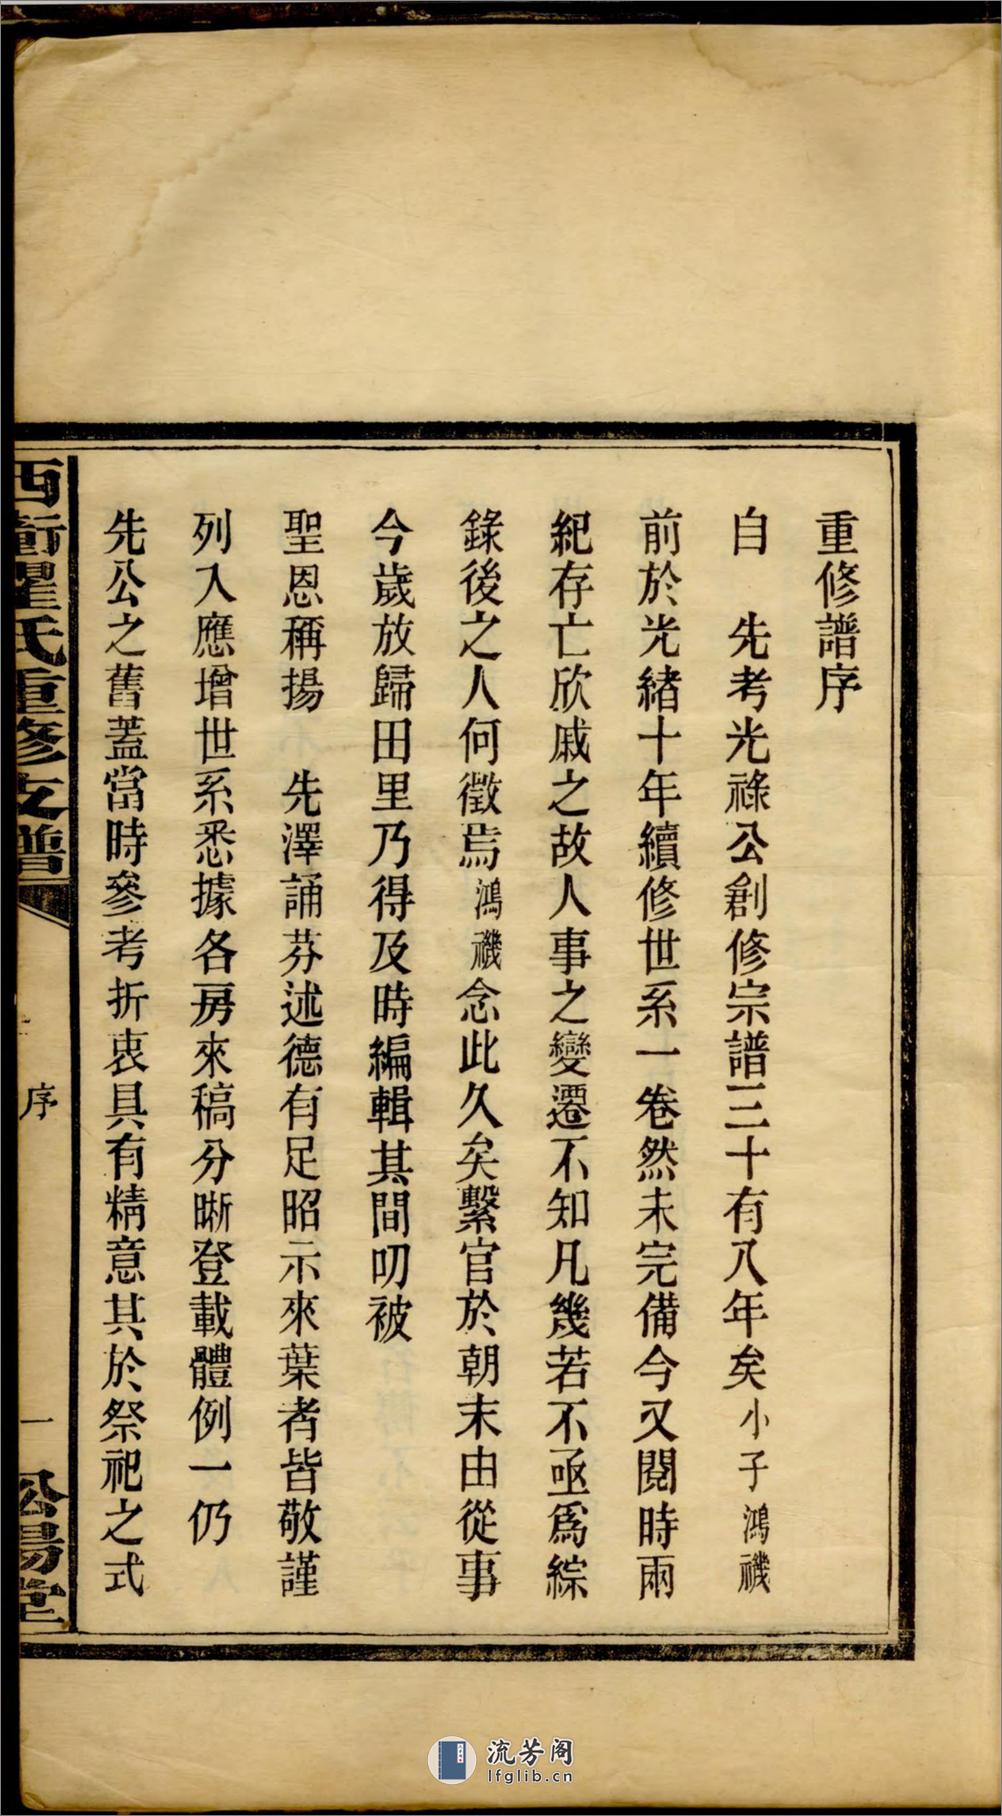 重修譜序
自　先考光祿公創修宗譜三十有八年矣小子鴻禨
前於光緒十年續修世系一卷然未完備今又閱時兩
紀存亡欣戚之故人事之變遷不知凡幾若不亟爲綜
錄後之人何徵焉鴻禨念此久矣繫官於朝末由從事
今歲放歸田里乃得及時編輯其間叨被
聖恩稱揚　先澤誦芬述德有足昭示來葉者皆敬謹
列入應增世系悉據各房來稿分晰登載體例一仍
先公之舊蓋當時參考折衷具有精意其於祭祀之式
西衝瞿氏重修支譜
序
一
松陽堂
流芳阁
lfglib.cn